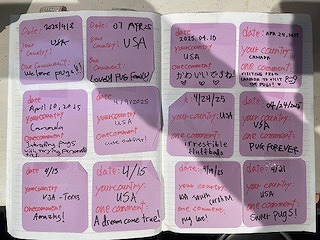 Date: 2025/4/8
your Country:
USA
One Comment:
Welcome pugs!!
Date: 07 APR 25
your Country:
USA
One Comment:
Lovely PUG Family!
date:
April 10, 2025
your country:
Canadian
one comment
Interesting pugs
with varying personalities
4/9/2025
USA
cute outfits!
date
4/13
your country:
USA - Texas
one comment
Amazing!
date: 4/15
your country:
USA
one comment:
A dream come true!
date
2025.04.10
your country:
USA
one comment
かわいいですね!
date: APR 24, 2025
your country:
CANADA
one comment:
VISITING FROM
CANADA TO VISIT
THE PUGS!
date
4/24/25
your country: USA
one comment
irresistible
fluffballs
date: 04/24/2025
your country:
USA
one comment:
PUG FOREVER
date
4/19/25
your country:
USA South Carolina
one comment:
pug love!
date: 4/21
your country:
USA
one comment:
Sweet pugs!